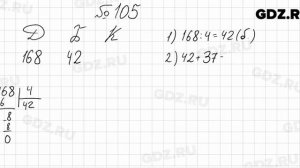 GDZ.RU
№ 105
Д Б К
168 42
1) 168:4=42(б)
2) 42+37
168 4
6 42
8
8
0
GDZ.RU